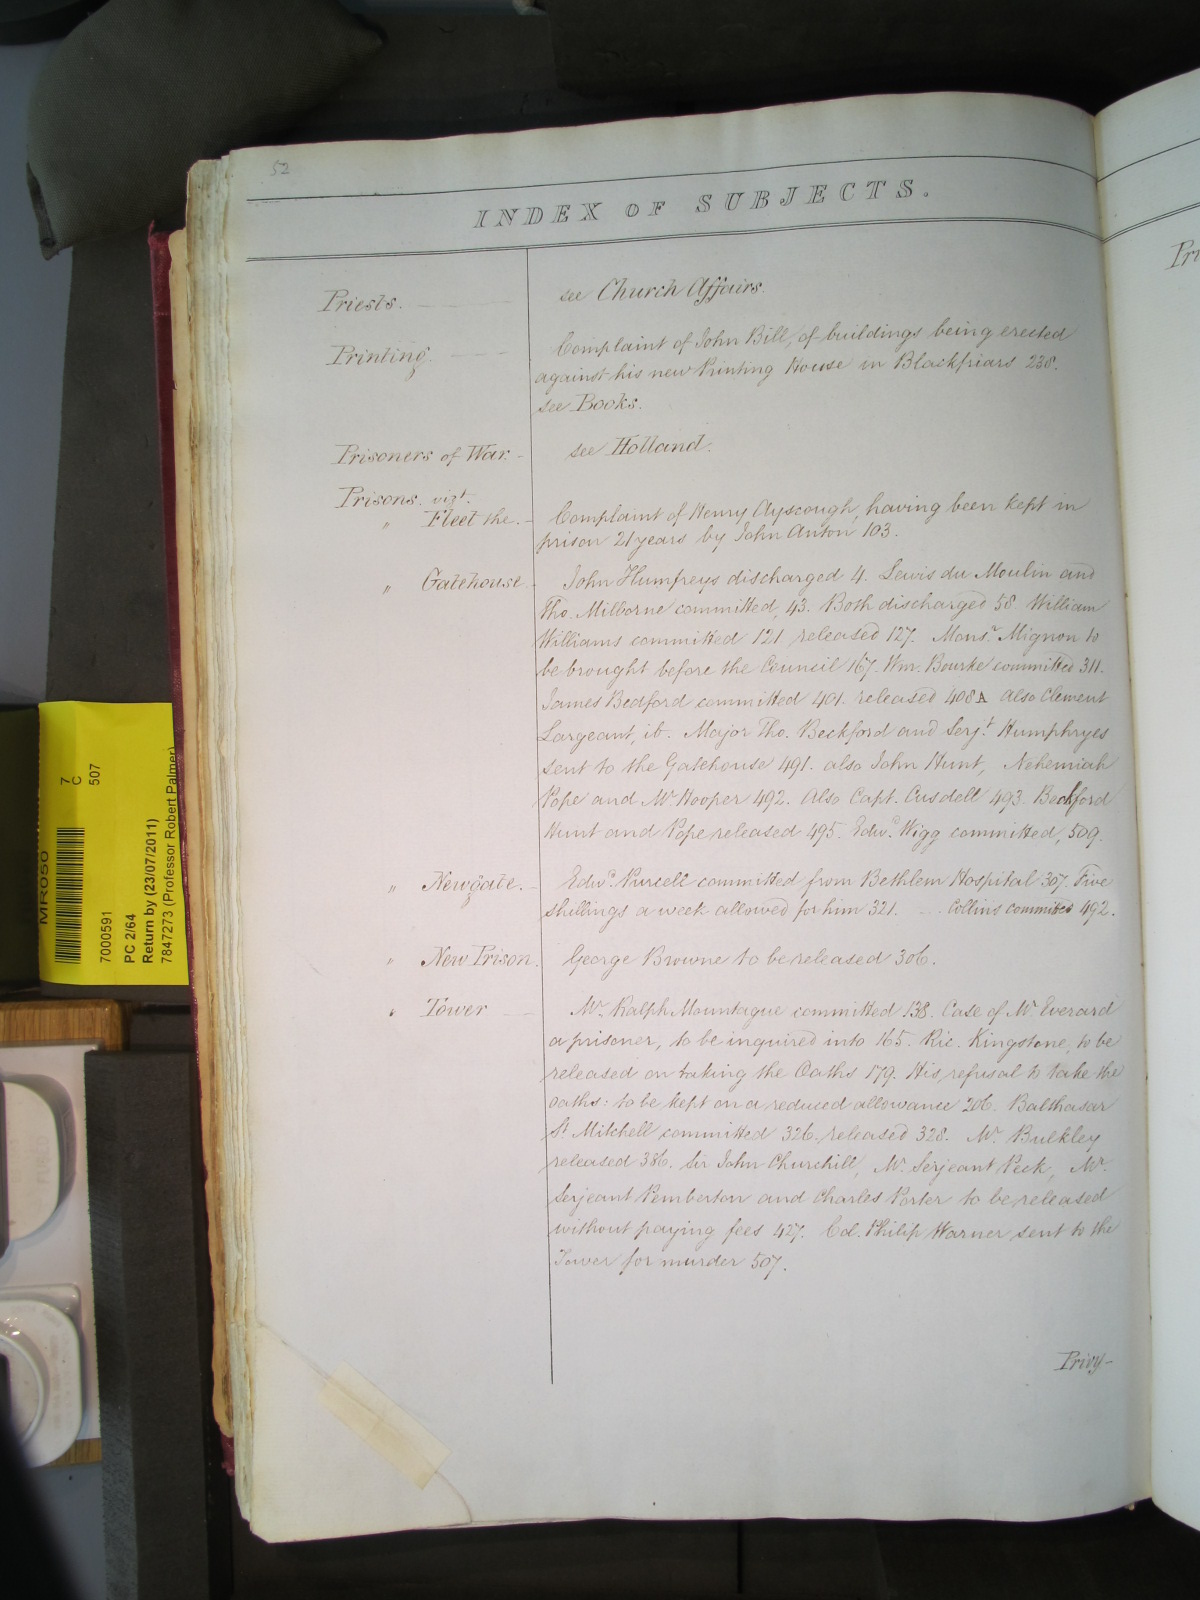 52
INDEX OF SUBJECTS.
Priests. see Church Affairs.
Printing. Complaint of John Bill, of buildings being erected
against his new Printing House in Blackfriars 238.
see Books.
Prisoners of War. - see Holland.
Prisons. vizt.
" Fleet the. - Complaint of Henry Ayscough, having been kept in
prison 21 years by John Anton 103.
" Gatehouse - John Humfreys discharged 4. Lewis du Moulin and
Tho. Milborne committed, 43. Both discharged 58. William
Williams committed 121 released 127. Monsr. Mignon to
be brought before the Council 167. Wm. Bourke committed 311.
James Bedford committed 401. released 408A Also Clement
Largeant, ib. Major Tho. Beckford and Serjt. Humphryes
sent to the Gatehouse 491. also John Hunt, Nehemiah
Pope and Mr Hooper 492. Also Capt. Cusdell 493. Beckford
Hunt and Pope released 495. Edwd. Wigg committed, 509.
" Newgate. - Edwd. Purcell committed from Bethlem Hospital 307. Five
shillings a week allowed for him 321. ... Collins committed 492.
" New Prison. George Browne to be released 306.
" Tower Mr. Ralph Mountague committed 138. Case of Mr Everard
a prisoner, to be inquired into 165. Ric. Kingstone, to be
released on taking the Oaths 179. His refusal to take the
oaths: to be kept on a reduced allowance 206. Balthasar
St. Mitchell committed 326. released 328. Mr. Bulkley
released 386. Sir John Churchill, Mr. Serjeant Peck, Mr.
Serjeant Pemberton and Charles Porter to be released
without paying fees 427. Col. Philip Warner sent to the
Tower for murder 507.
Privy-
Pri
MR050
7
C
507
7000591
PC 2/64
Return by (23/07/2011)
7847273 (Professor Robert Palmer)